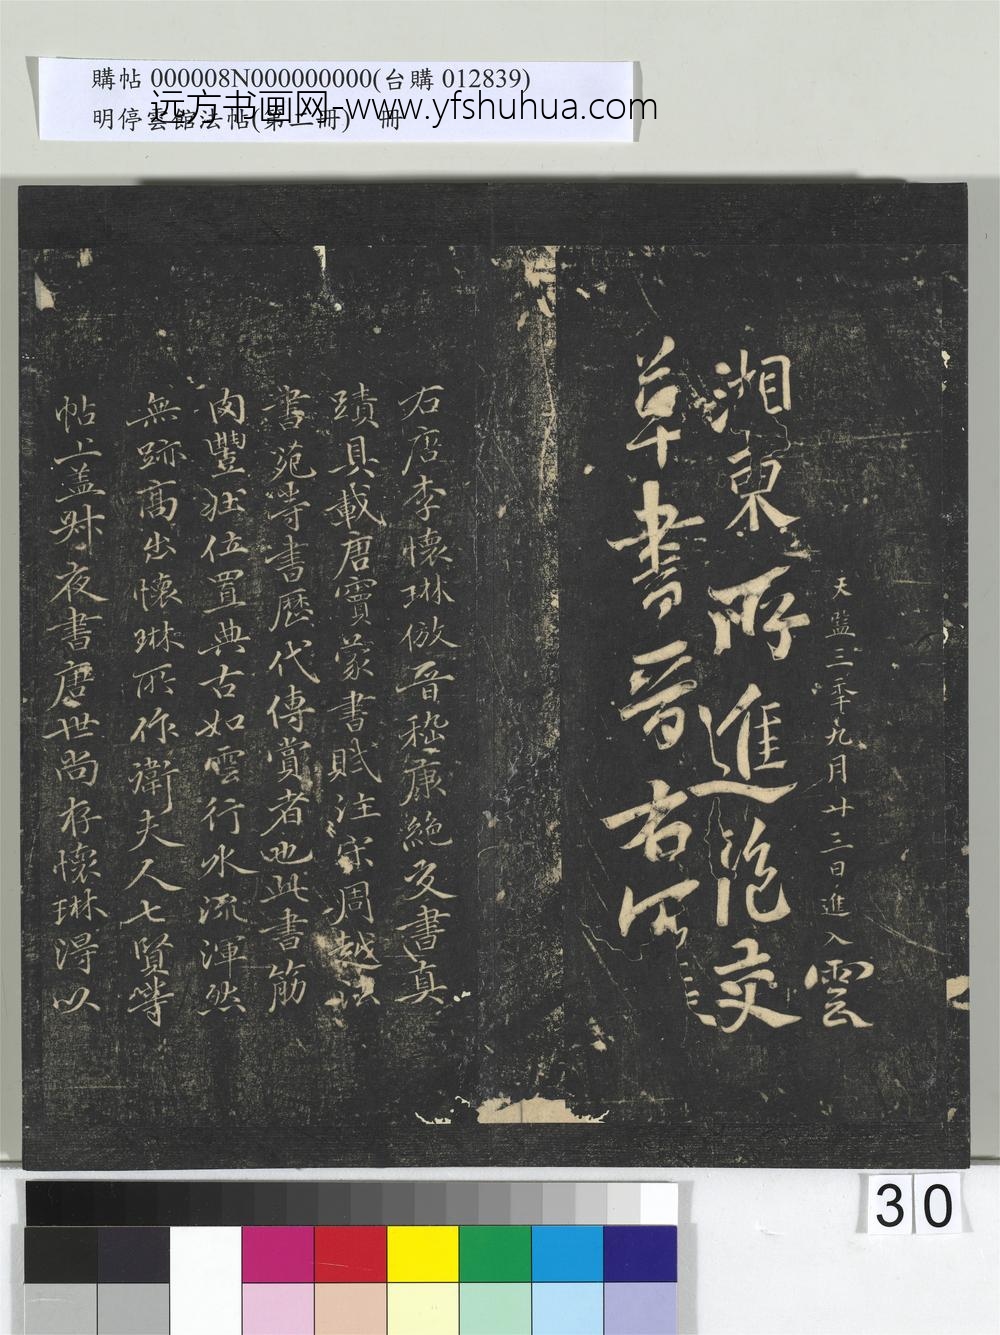 購帖 000008N000000000(台購 012839)
明停雲館法帖(第二冊) 冊
远方书画网-www.yfshuhua.com
天監三年九月廿三日進入 雲
湘東所進 交
草書晉右軍
右唐李懷琳倣晉嵇康絶交書真
蹟具載唐竇蒙書賦注宋周越
書苑等書歷代傳賞者也此書筋
肉豐 位置典古如雲行水流渾然
無跡髙出懷琳所作衛夫人七賢等
帖上盖 夜書唐世尚存懷琳淂以
30